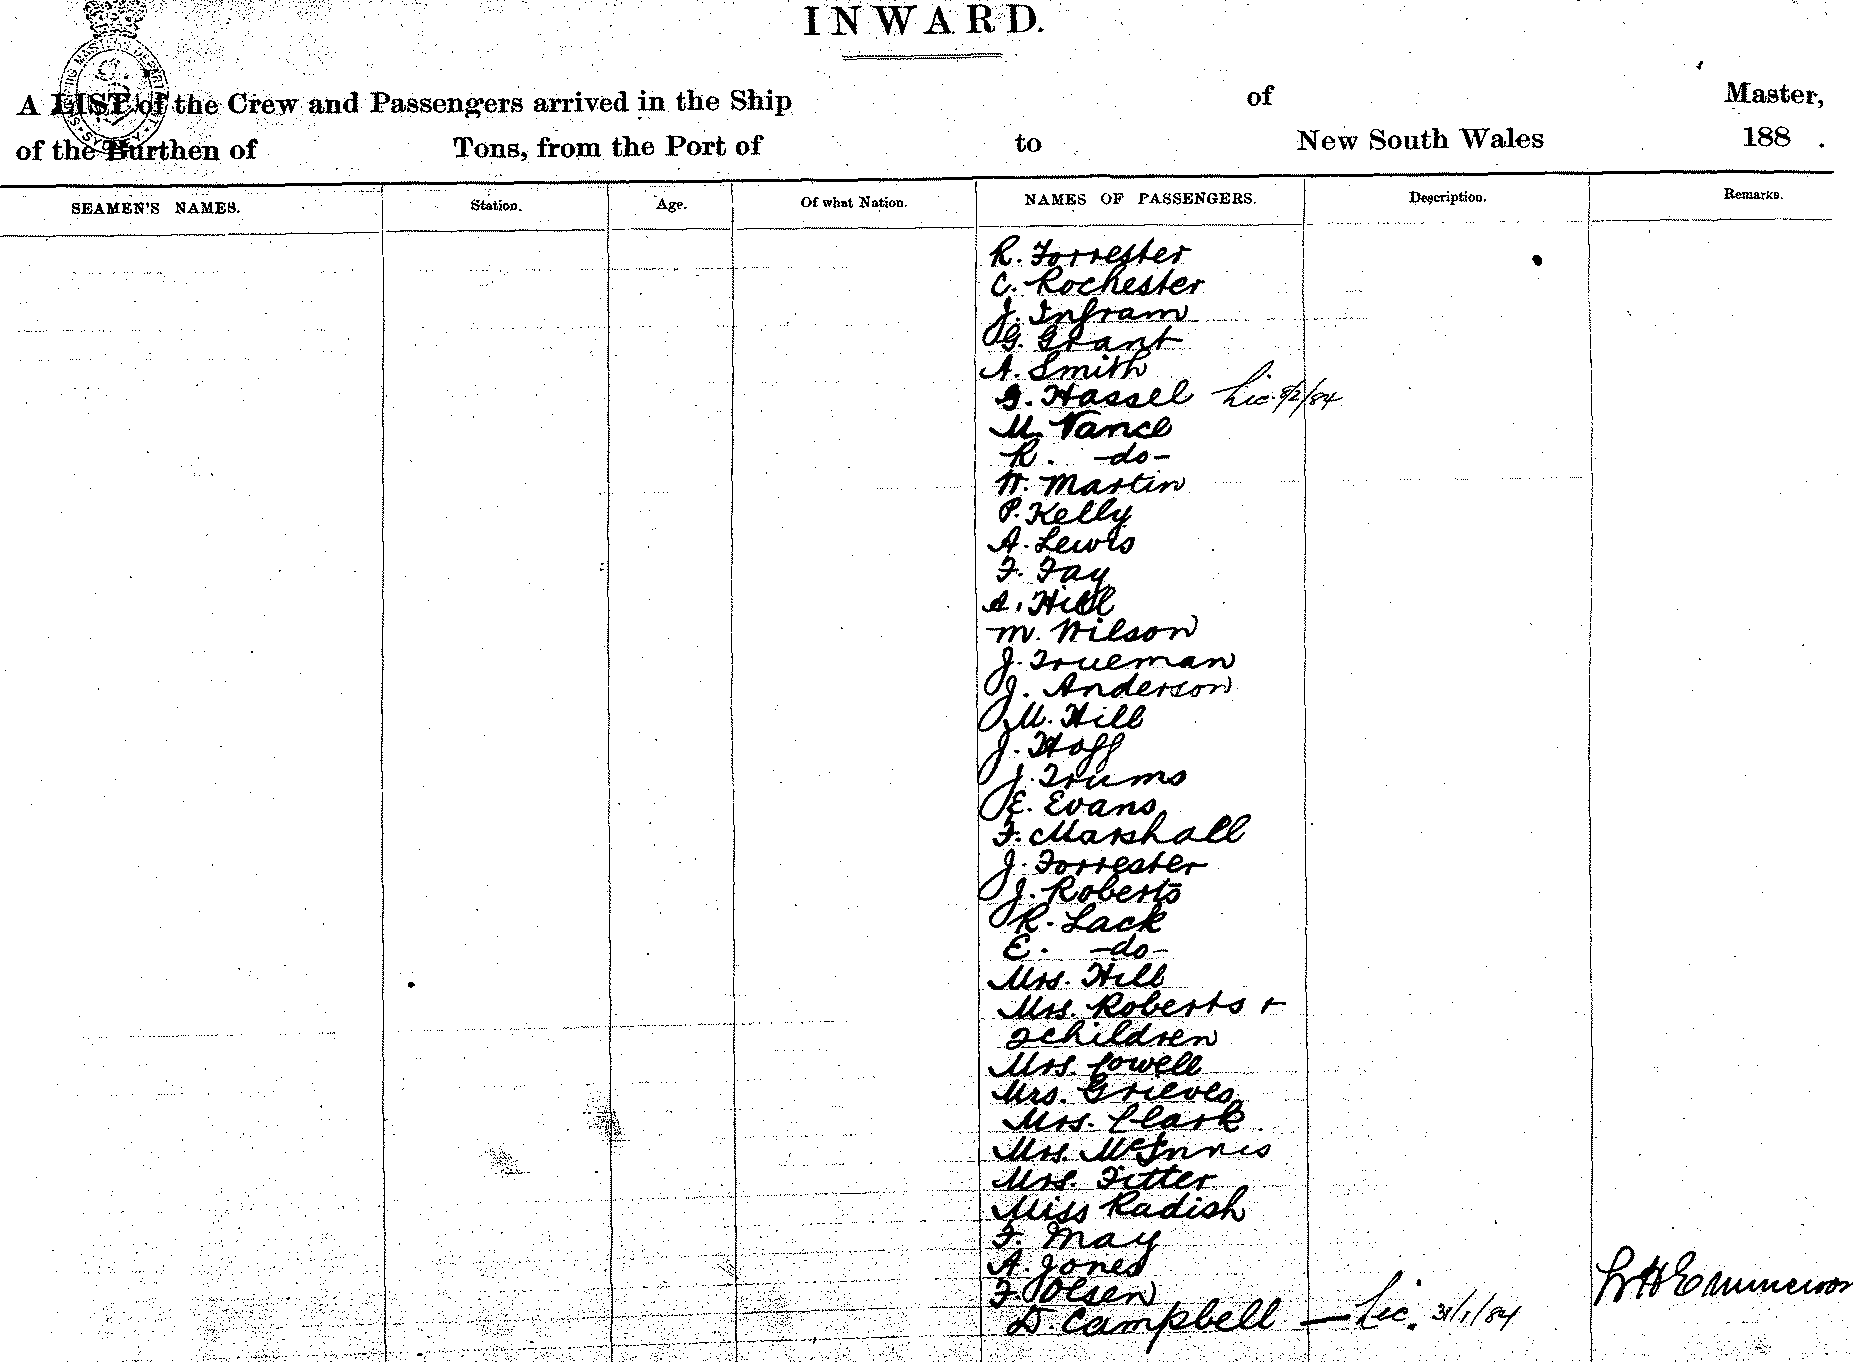 INWARD.
A LIST of the Crew and Passengers arrived in the Ship of Master,
of the Burthen of Tons, from the Port of to New South Wales 188 .
SEAMEN'S NAMES. Station. Age. Of what Nation. NAMES OF PASSENGERS. Description. Remarks.
R. Forrester
C. Rochester
J. Ingram
G. Grant
A. Smith
G. Hassel Lic. 8/2/84
M. Vance
R. -do-
W. Martin
P. Kelly
A. Lewis
F. Fay
A. Hill
M. Wilson
J. Trueman
J. Anderson
M. Hill
J. Hoff
J. Trums
E. Evans
F. Marshall
J. Forrester
J. Roberts
R. Lack
E. -do-
Mrs. Hill
Mrs. Roberts +
2 children
Mrs. Cowell
Mrs. Grieves
Mrs. Clark
Mrs. McInnes
Mrs. Fitter
Miss Radish
F. May
A. Jones
F. Olsen
D. Campbell — Lic. 31/1/84